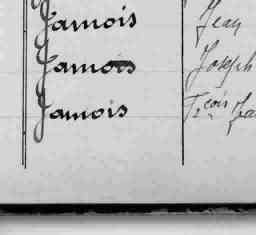 Jamois Jean
Jamois Joseph
Jamois Fçois